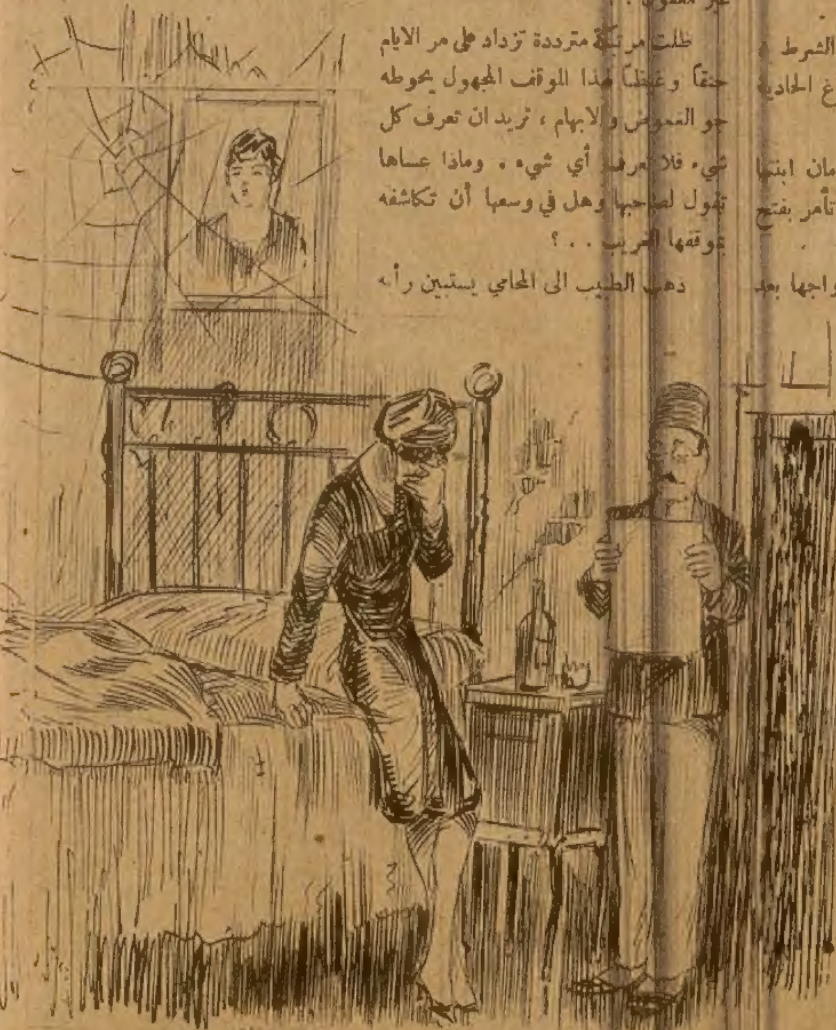 غير معقول . .
ظلت مرتبكة مترددة تزداد على مر الايام
حنقاً وغيظاً هذا الموقف المجهول يحوطه
جو الغموض والابهام ، تريد ان تعرف كل
شيء فلا تعرف أي شيء . وماذا عساها
تقول لصاحبها وهل في وسعها أن تكاشفه
بموقفها الغريب . . ؟
ذهب الطبيب الى المحامي يستبين رأيه
الشرط
غ الحادية
مان ابنتها
تأمر بفتح
واجها بعد